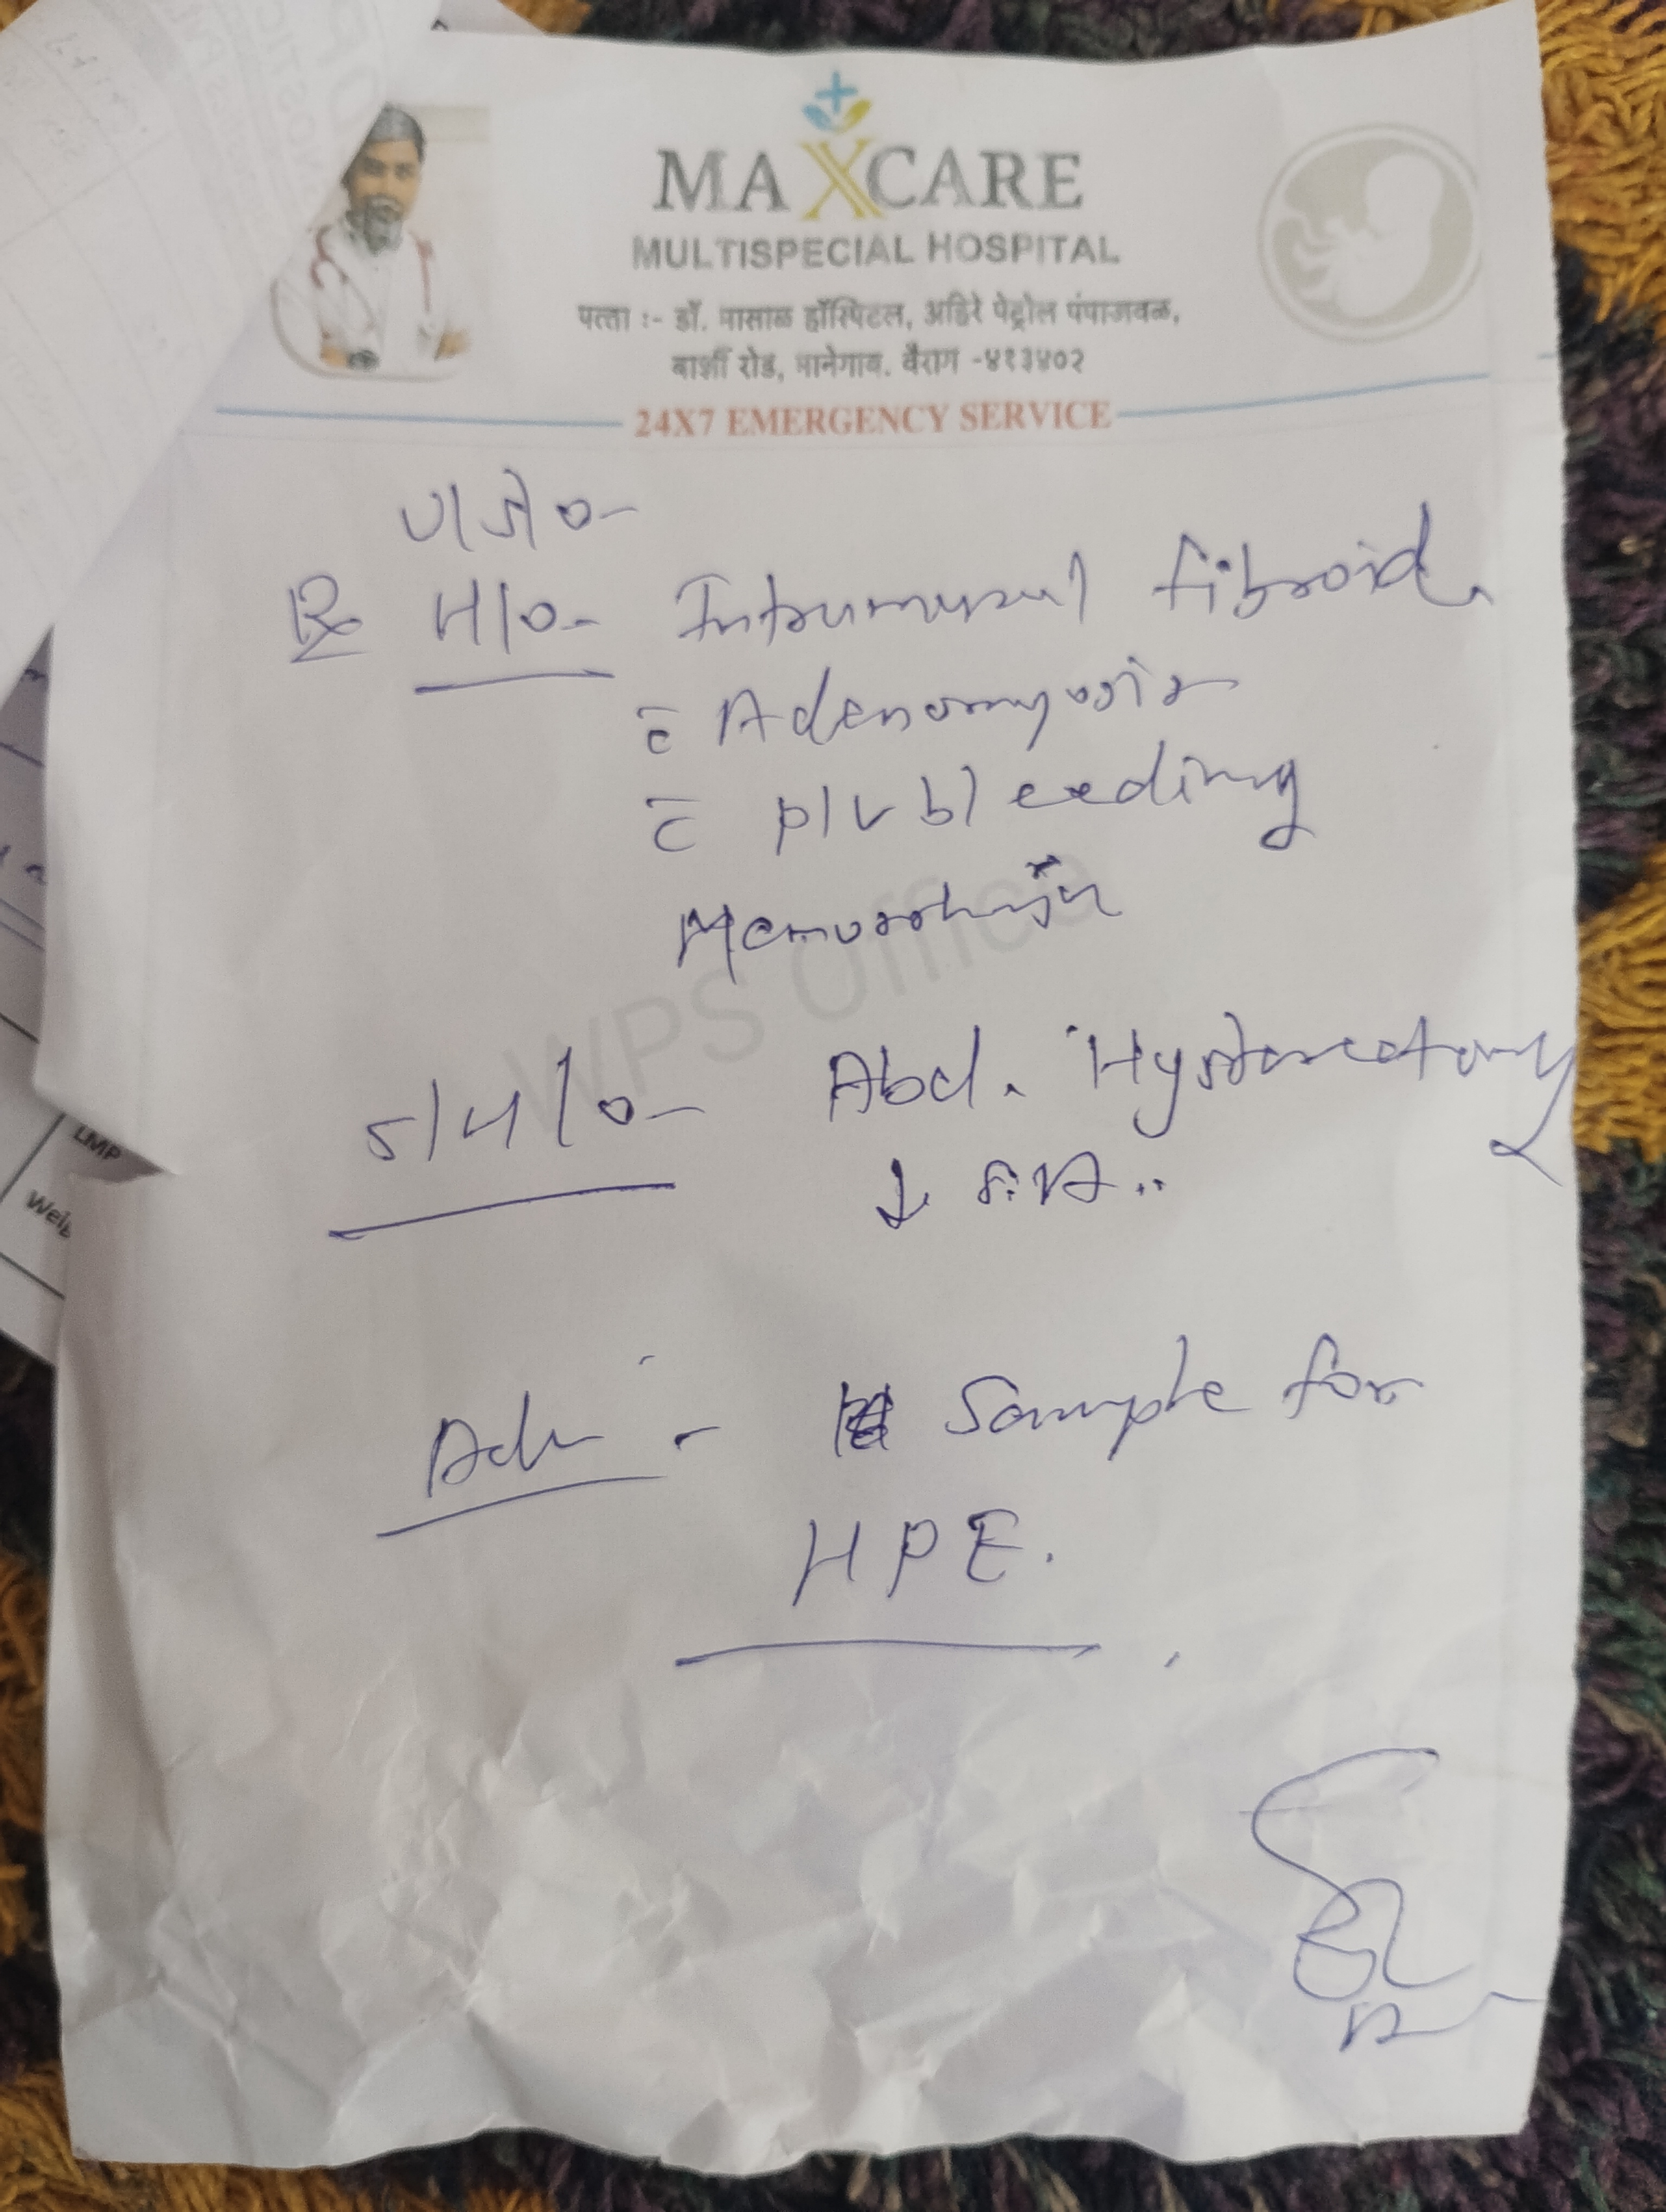 MAXCARE
MULTISPECIAL HOSPITAL
पत्ता :- डॉ. मासाळ हॉस्पिटल, अहिरे पेट्रोल पंपाजवळ,
बार्शी रोड, मानेगाव. वैराग -४१३४०२
24X7 EMERGENCY SERVICE
Rx H/o- Intramural fibroid.
c̄ Adenomyosis
c̄ p/v bleeding
WPS Office
Abd. Hysterectomy
↓ S.A..
Adv - Sample for
HPE.
LMP